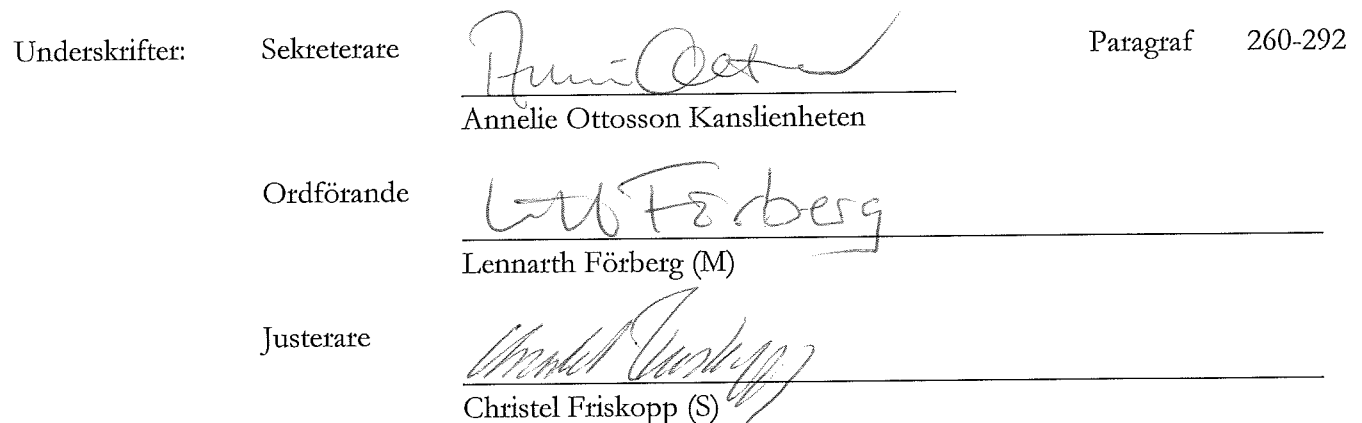 Underskrifter: Sekreterare Paragraf 260-292
Annelie Ottosson Kanslienheten
Ordförande Förberg
Lennarth Förberg (M)
Justerare
Christel Friskopp (S)